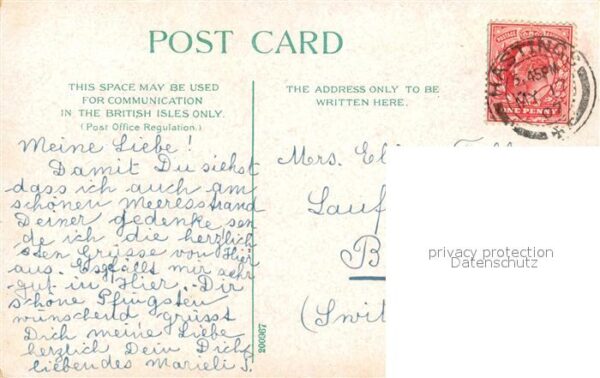 POST CARD
THIS SPACE MAY BE USED
FOR COMMUNICATION
IN THE BRITISH ISLES ONLY.
(Post Office Regulation.)
THE ADDRESS ONLY TO BE
WRITTEN HERE.
HASTINGS
5.45PM
MY 17
ONE PENNY
Meine Liebe!
Damit Du siehst
dass ich auch am
schönen Meeresstrand
Deiner gedenke sen
de ich die herzlich
sten Grüsse von Hier
aus. Es gefällt mir sehr
gut in Hier. Dir
schöne Pfingsten
wünschend grüsst
Dich meine Liebe
herzlich Dein Dich
liebendes Marieli S.
Mrs.
Lauf
B
(Swit
200967
privacy protection
Datenschutz